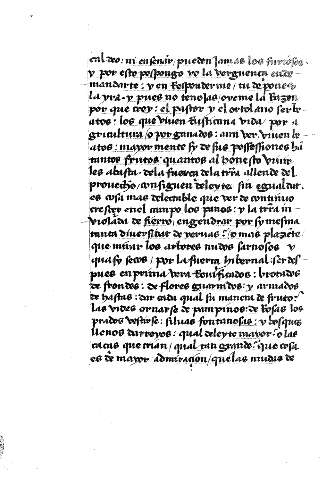 cal deo: ni enseñar, pueden jamas los furiosos
y por esto pospongo yo la verguença en te
mandarte: y en Responder me / tu de pones
la yra. y pues no te nojas oye me la Razon
por que creo: el pastor y el ortolano ser be
atos: los que viven Rusticana vida, por a
gricultura / o por ganados: aun ver viven be
atos: mayor mente sy de sus possessiones ha
tantos frutos: quantos al honesto vivir
les abasta. de la fuerça de la trra allende del
provecho / consiguen deleyte sin egualdat.
es cosa mas delectable que ver de continuo
cresçer en el campo los panes: y la trra in
violada de fierro, engendrar por sy mesma
tanta diversitat de yervas: o mas plazete
que mirar los arbores nudos sarnosos y
quasy secos / por la fuerça hibernal: ser des
pues en prima vera Revificados: brotados
de frondes: de flores guarnidos: y armados
de hastas: dar cada qual su manera de fruto:
las vides ornarse de pampinos: de Rosas los
prados vestirse: silvas fontanosas: y bosques
llenos darroyos: qual deleyte mayor: o las
caças que crian / qual tan grande: que cosa
es de mayor admiraçion / que las mudas de